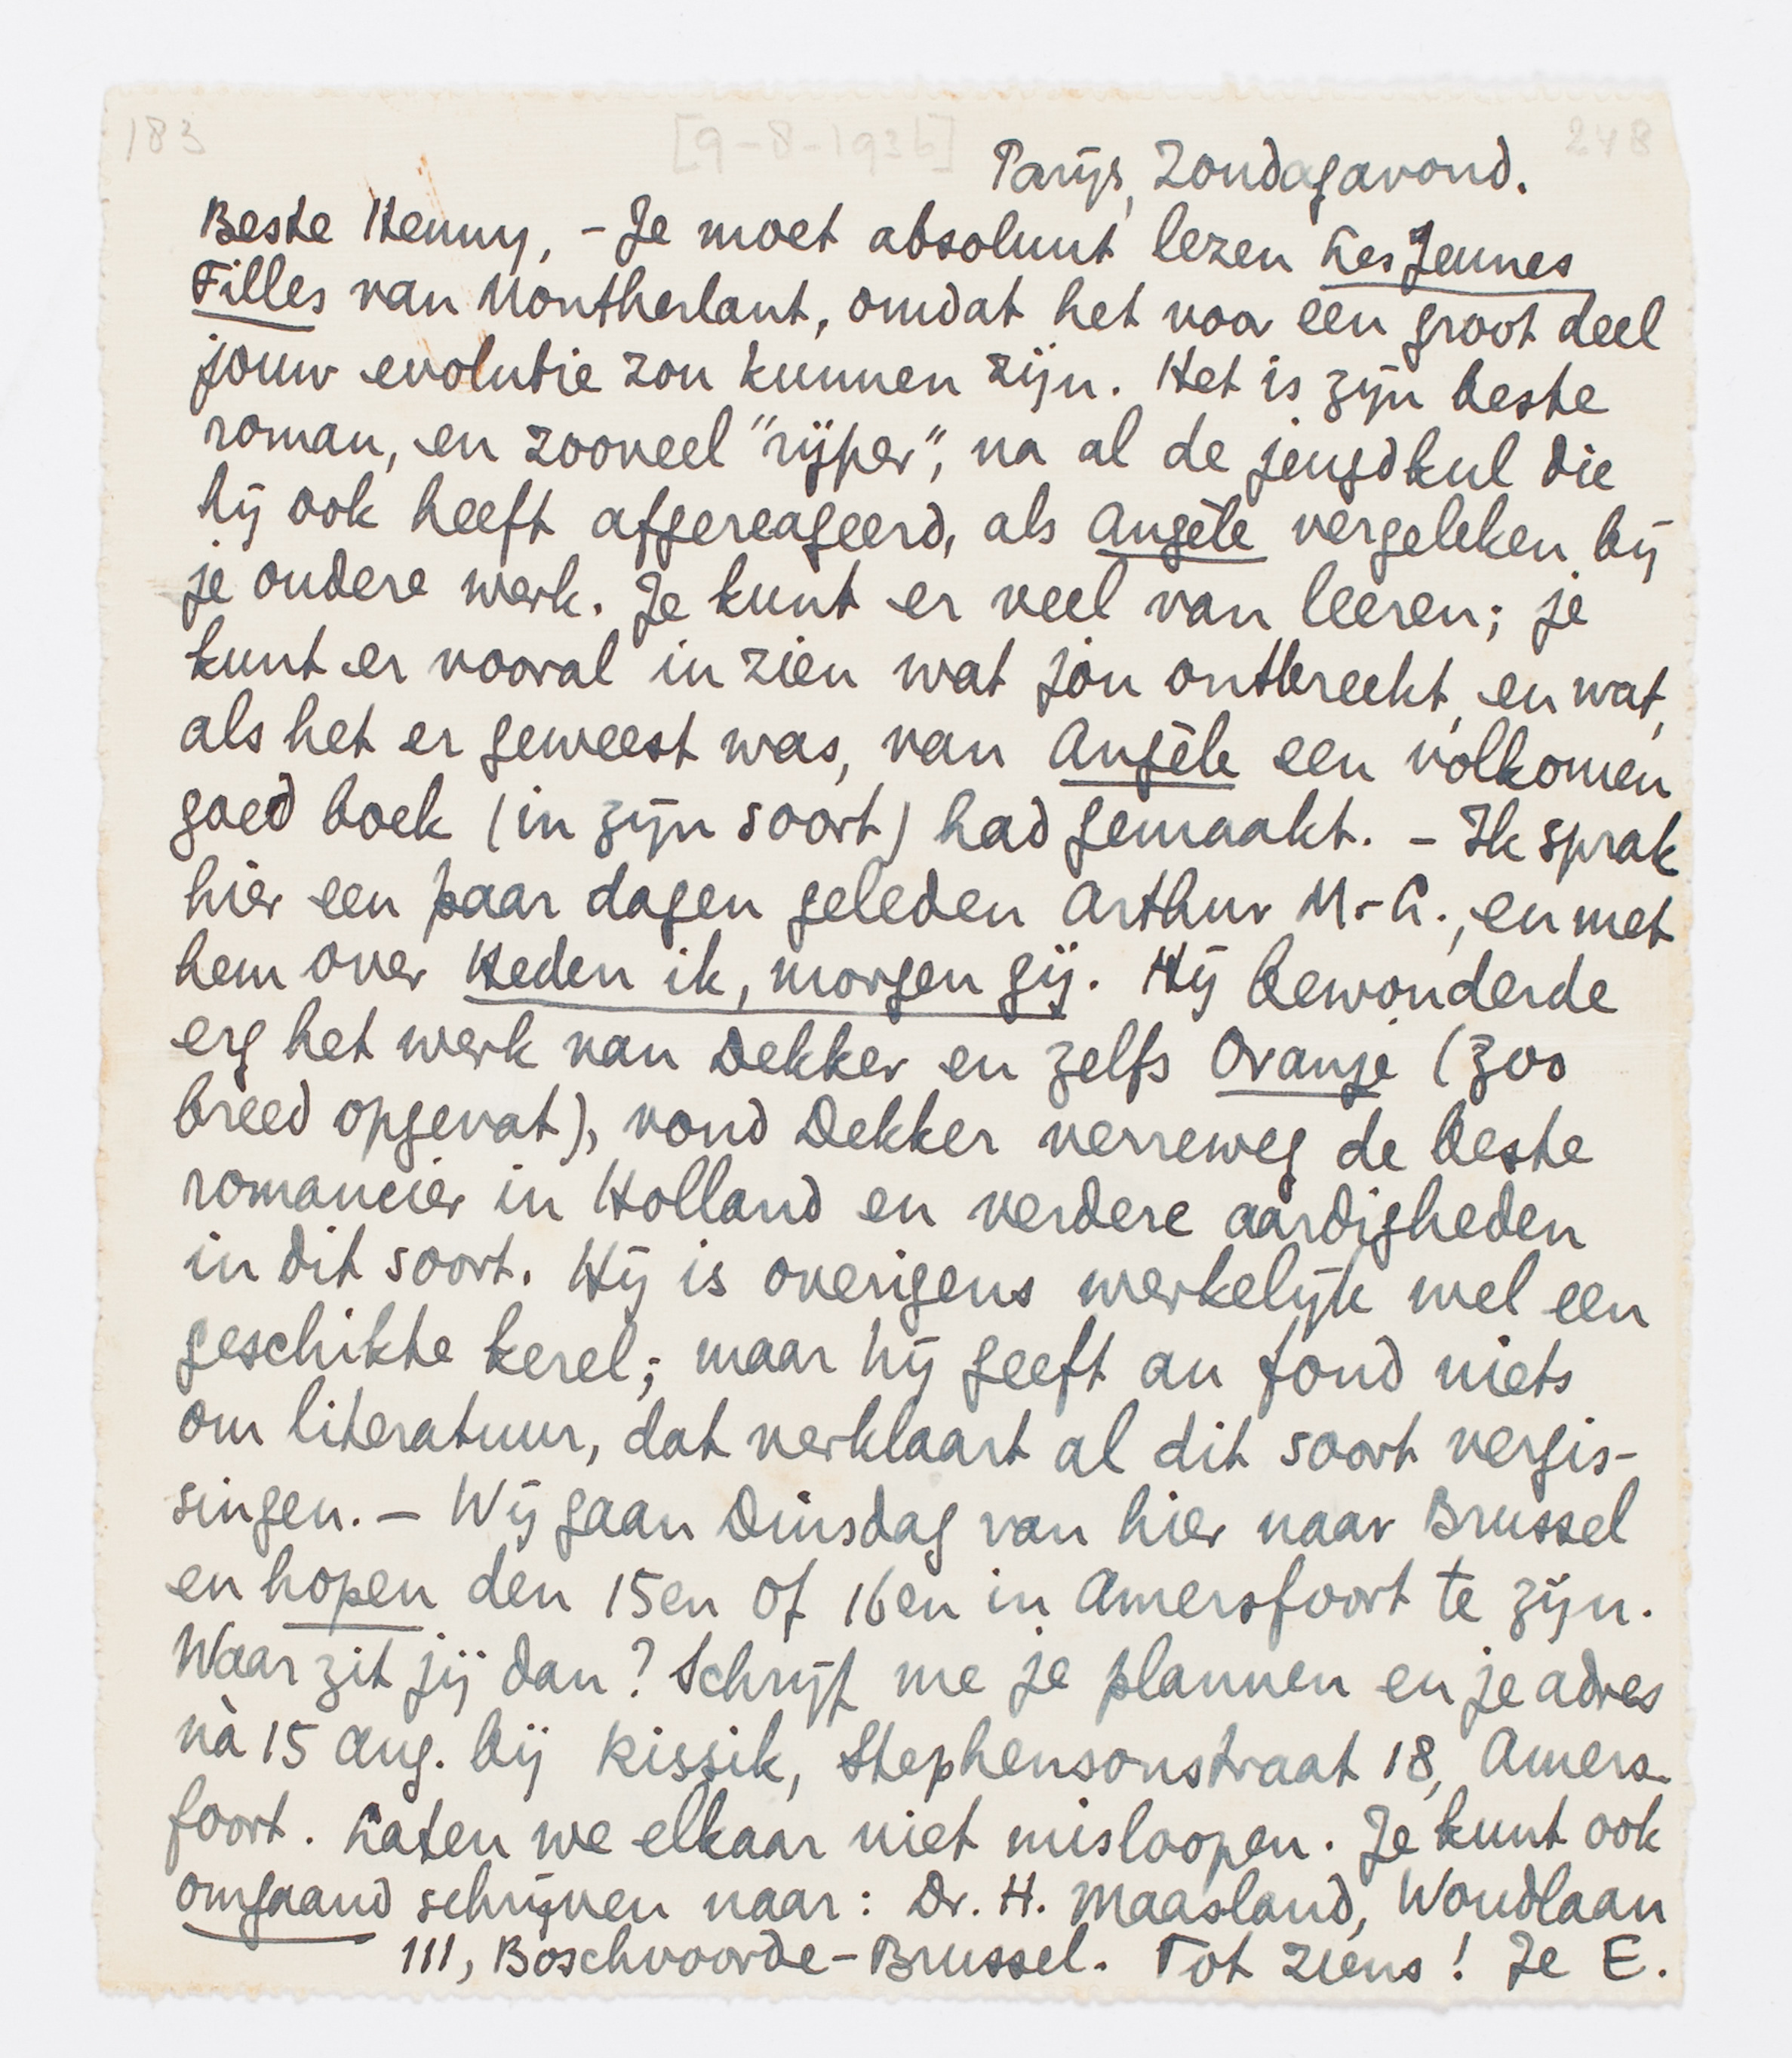 183 [9-8-1936] 248
Parijs, Zondagavond.
Beste Henny, - Je moet absoluut lezen Les Jeunes
Filles van Montherlant, omdat het voor een groot deel
jouw evolutie zou kunnen zijn. Het is zijn beste
roman, en zooveel "rijper", na al de jeugdkul die
hij ook heeft afgereageerd, als Angèle vergeleken bij
je oudere werk. Je kunt er veel van leeren; je
kunt er vooral in zien wat jou ontbreekt, en wat,
als het er geweest was, van Angèle een volkomen
goed boek (in zijn soort) had gemaakt. - Ik sprak
hier een paar dagen geleden Arthur M.-L., en met
hem over Heden ik, morgen gij. Hij bewonderde
erg het werk van Dekker en zelfs Oranje (zoo
breed opgevat), vond Dekker verreweg de beste
romancier in Holland en verdere aardigheden
in dit soort. Hij is overigens werkelijk wel een
geschikte kerel; maar hij geeft au fond niets
om literatuur, dat verklaart al dit soort vergis-
singen. - Wij gaan Dinsdag van hier naar Brussel
en hopen den 15en of 16en in Amersfoort te zijn.
Waar zit jij dan? Schrijf me je plannen en je adres
nà 15 Aug. bij Kissik, Stephensonstraat 18, Amers-
foort. Laten we elkaar niet misloopen. Je kunt ook
omgaand schrijven naar: Dr. H. Maasland, Woudlaan
111, Boschvoorde-Brussel. Tot ziens! Je E.